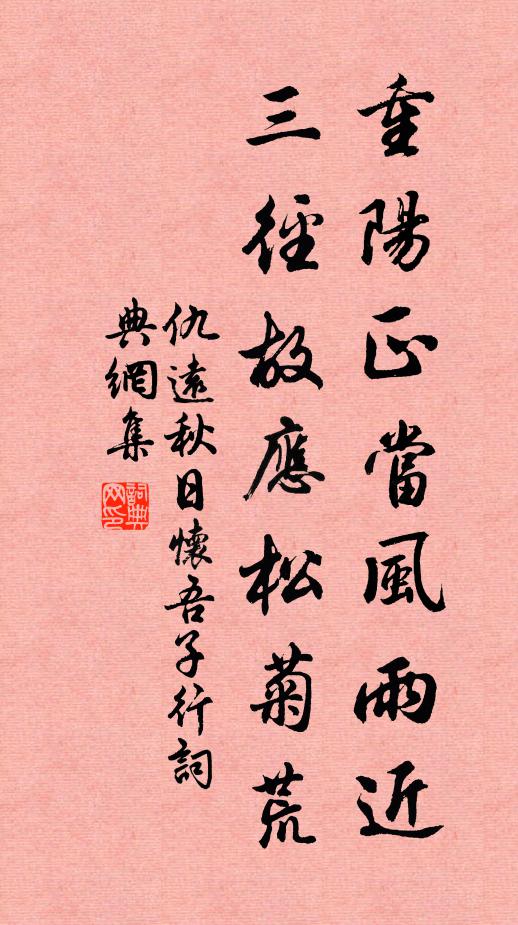 重陽正當風雨近
三徑故應松菊荒
仇遠秋日懷吾子行詞
典網集
詞典
网印